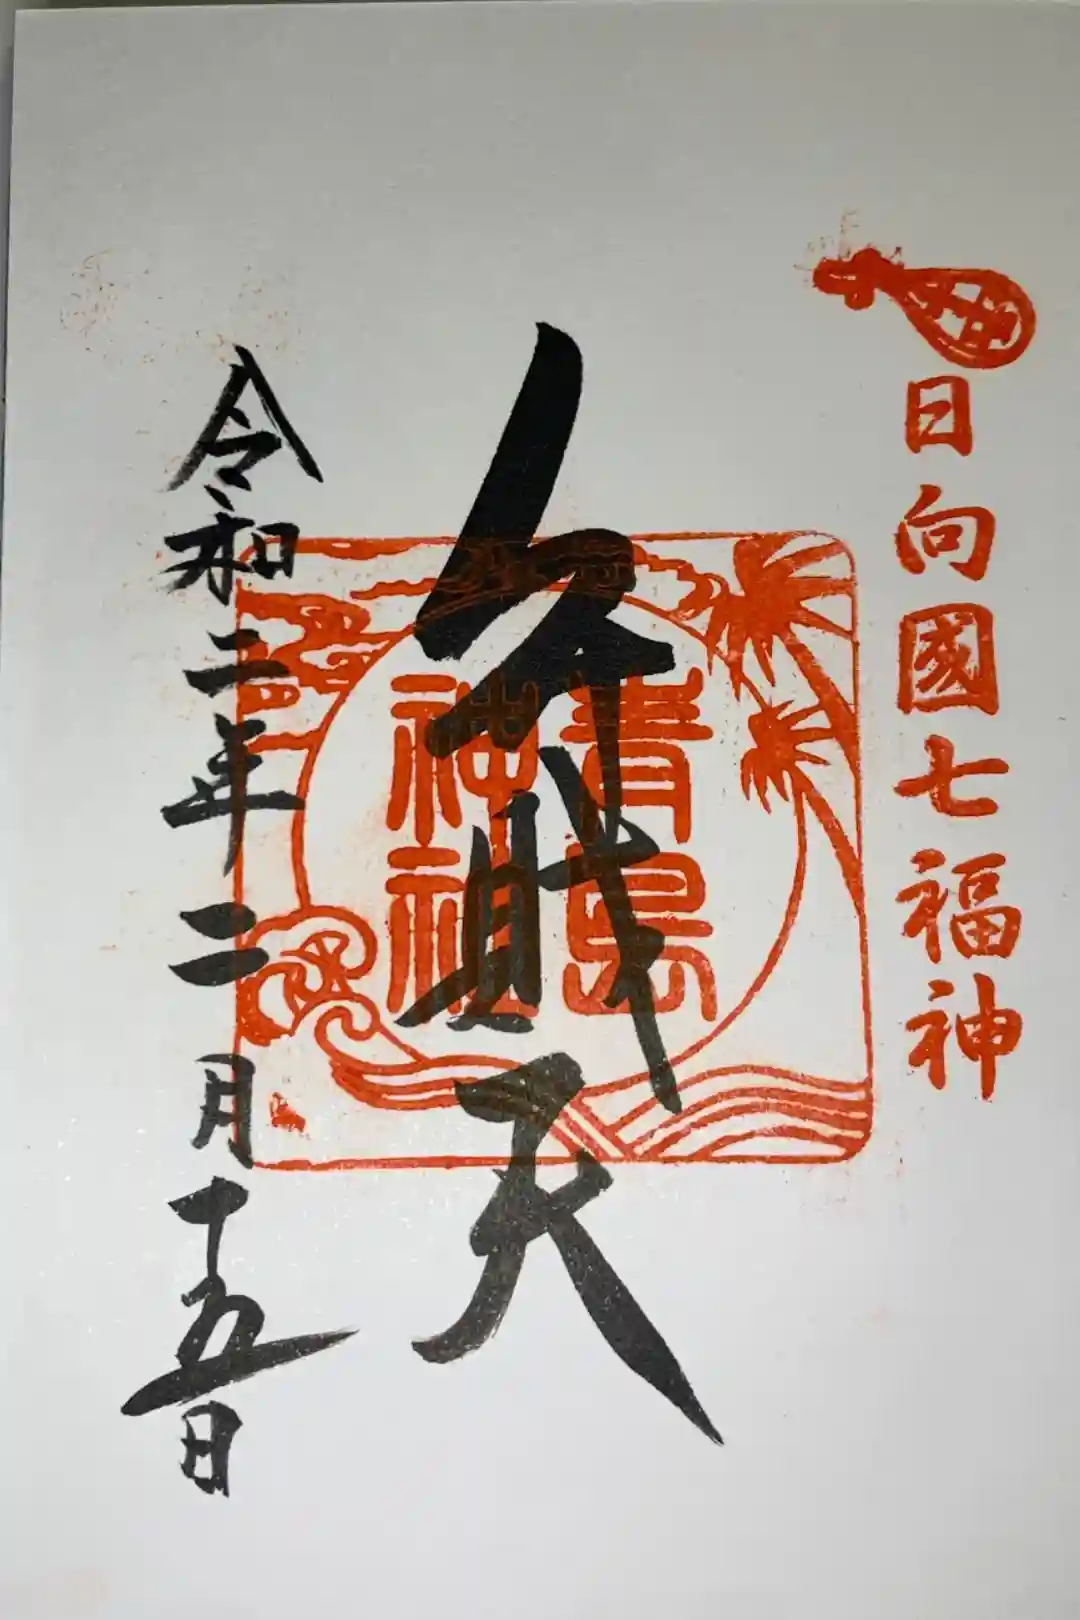 日向國七福神
弁財天
青島
神社
令和二年二月十五日